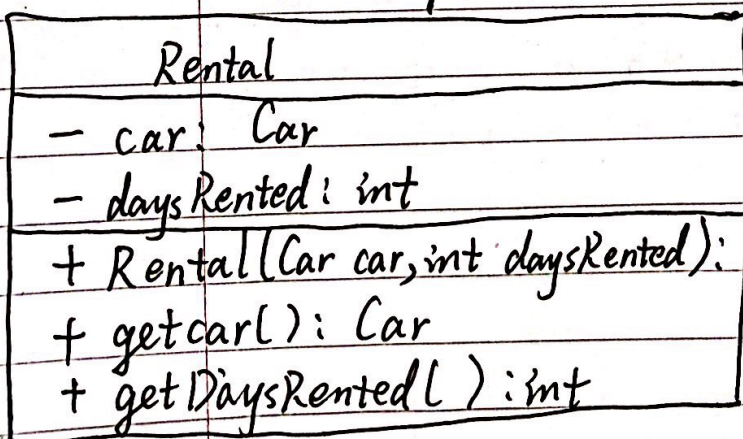 Rental
- car: Car
- daysRented: int
+ Rental(Car car, int daysRented):
+ getcar(): Car
+ getDaysRented( ): int